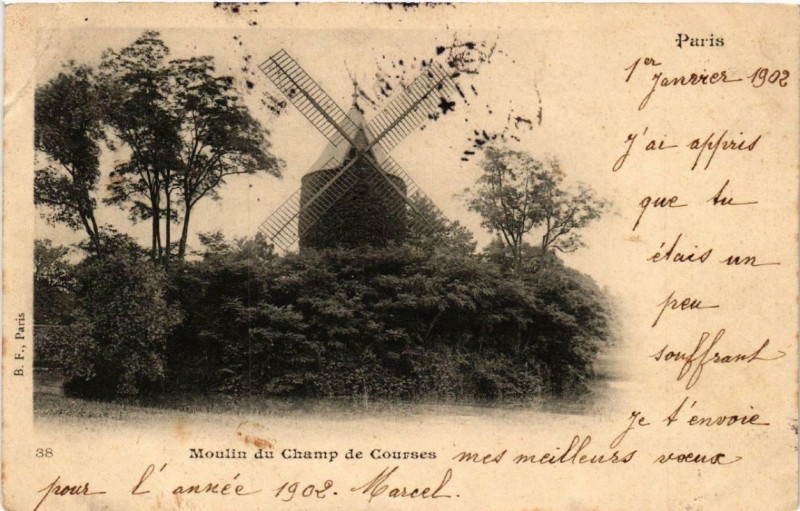 Paris
1er
Janvier 1902
J'ai appris
que tu
étais un
peu
souffrant
Je t'envoie
38 Moulin du Champ de Courses mes meilleurs vœux
pour l'année 1902. Marcel.
B. F., Paris